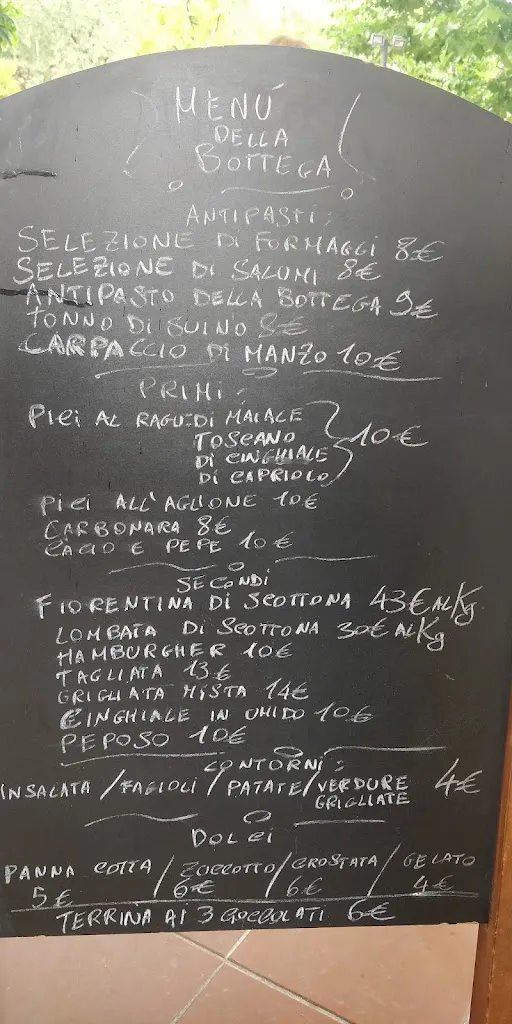 MENÚ
DELLA
BOTTEGA
ANTIPASTI:
SELEZIONE DI FORMAGGI 8€
SELEZIONE DI SALUMI 8€
ANTIPASTO DELLA BOTTEGA 9€
TONNO DI SUINO 8€
CARPACCIO DI MANZO 10€
PRIMI:
PICI AL RAGU: DI MAIALE
TOSCANO 10€
DI CINGHIALE
DI CAPRIOLO
PICI ALL'AGLIONE 10€
CARBONARA 8€
CACIO E PEPE 10€
SECONDI
FIORENTINA DI SCOTTONA 43€ AL Kg
LOMBATA DI SCOTTONA 30€ AL Kg
HAMBURGHER 10€
TAGLIATA 13€
GRIGLIATA MISTA 14€
CINGHIALE IN UMIDO 10€
PEPOSO 10€
CONTORNI:
INSALATA / FAGIOLI / PATATE / VERDURE GRIGLIATE 4€
DOLCI
PANNA COTTA / ZOCCOTTO / CROSTATA / GELATO
5€ 6€ 6€ 4€
TERRINA AI 3 CIOCCOLATI 6€